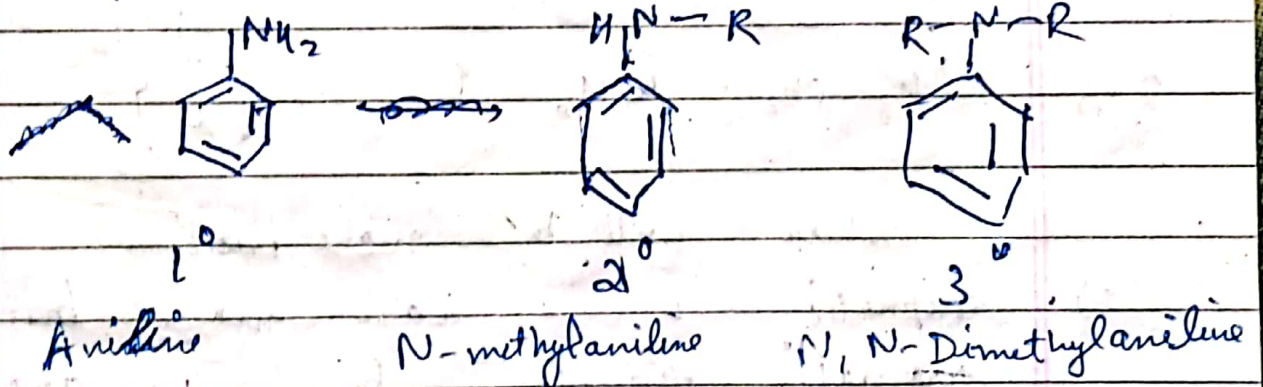 NH₂ HN-R R-N-R
1° 2° 3°
Aniline N-methylaniline N, N-Dimethylaniline